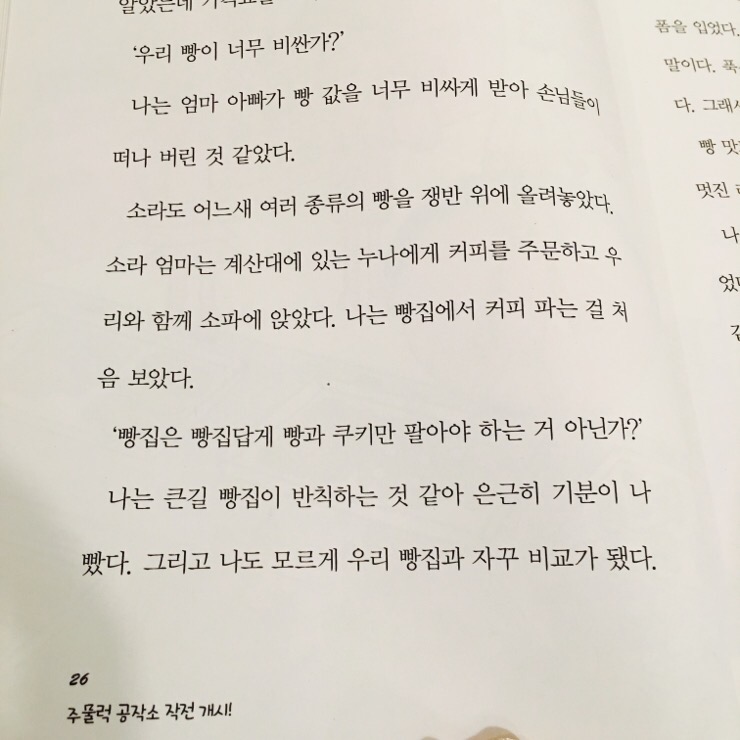 알았는데
‘우리 빵이 너무 비싼가?’
나는 엄마 아빠가 빵 값을 너무 비싸게 받아 손님들이
떠나 버린 것 같았다.
소라도 어느새 여러 종류의 빵을 쟁반 위에 올려놓았다.
소라 엄마는 계산대에 있는 누나에게 커피를 주문하고 우
리와 함께 소파에 앉았다. 나는 빵집에서 커피 파는 걸 처
음 보았다.
‘빵집은 빵집답게 빵과 쿠키만 팔아야 하는 거 아닌가?’
나는 큰길 빵집이 반칙하는 것 같아 은근히 기분이 나
빴다. 그리고 나도 모르게 우리 빵집과 자꾸 비교가 됐다.
26
주물럭 공작소 작전 개시!
폼을 입었다.
말이다. 푹
다. 그래서
빵 맛
멋진
나
었다